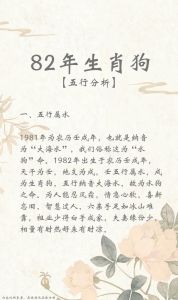 82年生肖狗
【五行分析】
一、五行属水
1981年为农历壬戌年，也就是纳音
为“大海水”，我们俗称这为“水
狗”命，1982年出生于农历壬戌年，
天干为壬，地支为戌，壬直行属水，戌
为生肖狗，五行纳音大海水，故为水狗
之命。为人能忍风霜，情急心软，喜新
忘旧，智慧过人，六亲手足如冰山难
靠，祖业少得白手成家，夫妻缘份少，
相量有财然好来有财凉。